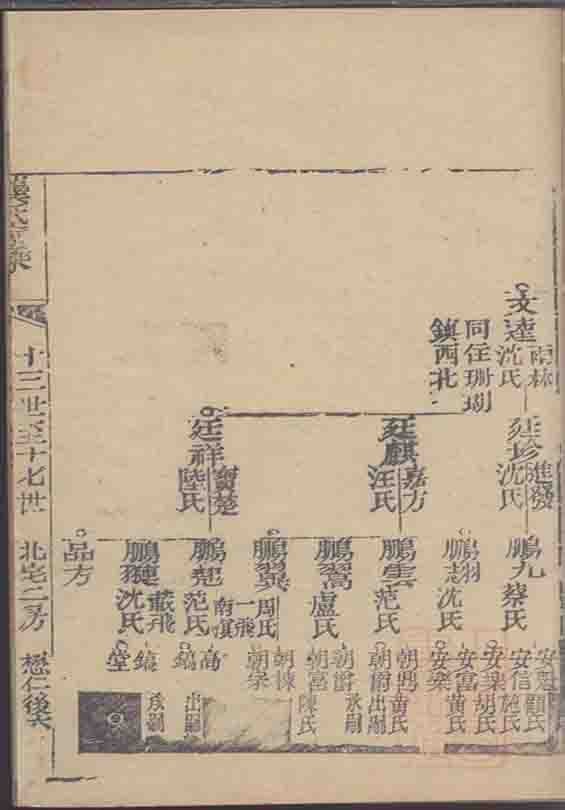 文達
雨林
沈氏
同住珊瑚
鎮西北
廷珍
進發
沈氏
廷麒
嘉方
汪氏
廷祥
寶楚
陸氏
鵬九
蔡氏
鵬翔
鵬志
沈氏
鵬雲
范氏
鵬翥
盧氏
鵬翼
周氏
一飛
南旗
鵬起
范氏
沈氏
品方
安信
施氏
顧氏
安泉
胡氏
安富
黄氏
安樂
朝興
黄氏
朝爵
出嗣
朝爵
承嗣
朝富
陳氏
朝棟
朝宗
高
鎬
出嗣
鎬
堂
承嗣
十三世至十七世
北宅二房
懋仁後